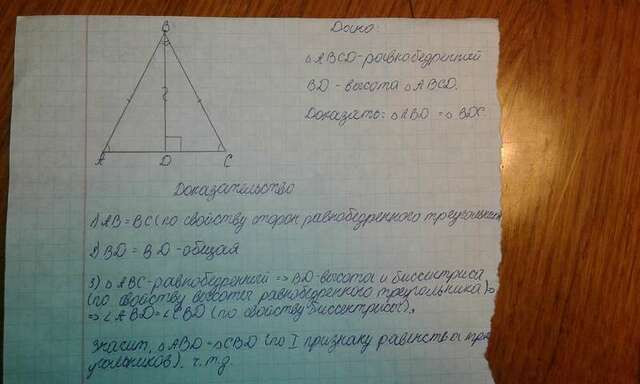 Дано:
△ABCD-равнобедренний
BD - высота △ABCD.
Доказать: △ABD = △BDC
B
A
D
C
Доказательство
1) AB = BC (по свойству сторон равнобедренного треугольн
2) BD = BD - общая
3) △ABC-равнобедренной ⇒ BD высота и биссектриса
(по свойству высоты равнобедренного треугольника) ⇒
⇒ ∠ABD = ∠CBD (по свойству биссектрисы).
Значит, △ABD = △CBD (по I признаку равенства тре
угольников). ч.т.д